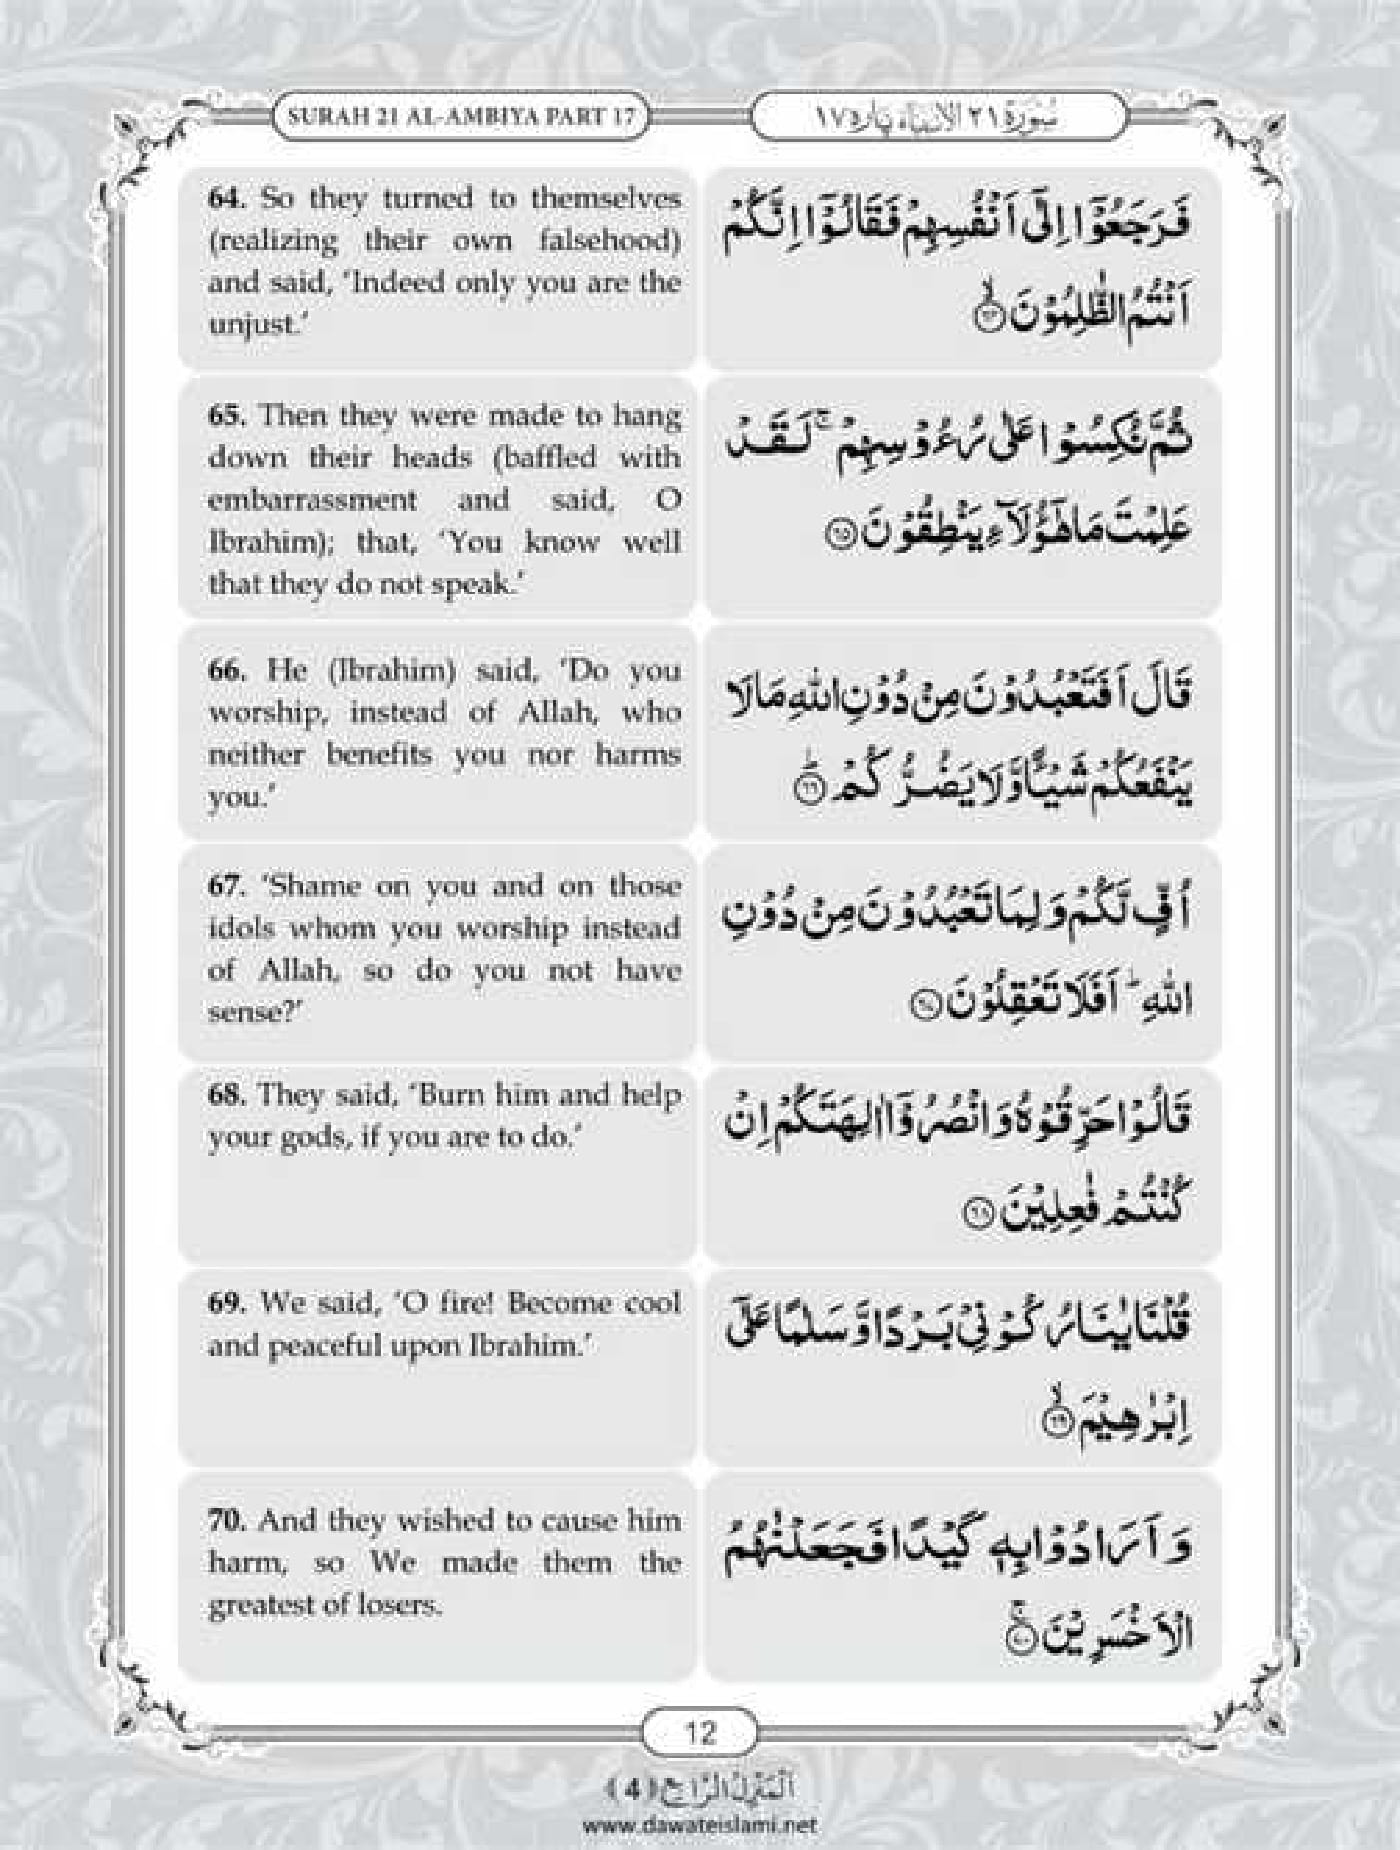 SURAH 21 AL-AMBIYA PART 17
سُوْرَة ٢١ الاَنْبِيَاء پاره ١٧
64. So they turned to themselves
(realizing their own falsehood)
and said, ‘Indeed only you are the
unjust.’
فَرَجَعُوْۤا اِلٰۤى اَنْفُسِهِمْ فَقَالُوْۤا اِنَّكُمْ
اَنْتُمُ الظّٰلِمُوْنَۙ۝۶۴
65. Then they were made to hang
down their heads (baffled with
embarrassment and said, O
Ibrahim); that, ‘You know well
that they do not speak.’
ثُمَّ نُكِسُوْا عَلٰى رُءُوْسِهِمْۚ لَقَدْ
عَلِمْتَ مَا هٰۤؤُلَآءِ يَنْطِقُوْنَ۝۶۵
66. He (Ibrahim) said, ‘Do you
worship, instead of Allah, who
neither benefits you nor harms
you.’
قَالَ اَفَتَعْبُدُوْنَ مِنْ دُوْنِ اللّٰهِ مَا لَا
يَنْفَعُكُمْ شَيْـًٔا وَّ لَا يَضُرُّكُمْؕ۝۶۶
67. ‘Shame on you and on those
idols whom you worship instead
of Allah, so do you not have
sense?’
اُفٍّ لَّكُمْ وَ لِمَا تَعْبُدُوْنَ مِنْ دُوْنِ
اللّٰهِؕ اَفَلَا تَعْقِلُوْنَ۝۶۷
68. They said, ‘Burn him and help
your gods, if you are to do.’
قَالُوْا حَرِّقُوْهُ وَ انْصُرُوْۤا اٰلِهَتَكُمْ اِنْ
كُنْتُمْ فٰعِلِيْنَ۝۶۸
69. We said, ‘O fire! Become cool
and peaceful upon Ibrahim.’
قُلْنَا يٰنَارُ كُوْنِيْ بَرْدًا وَّ سَلٰمًا عَلٰۤى
اِبْرٰهِيْمَۙ۝۶۹
70. And they wished to cause him
harm, so We made them the
greatest of losers.
وَ اَرَادُوْا بِهٖ كَيْدًا فَجَعَلْنٰهُمُ
الْاَخْسَرِيْنَۚ۝۷۰
12
اَلْمَنْزِلُ الرَّابِع ﴿4﴾
www.dawateislami.net